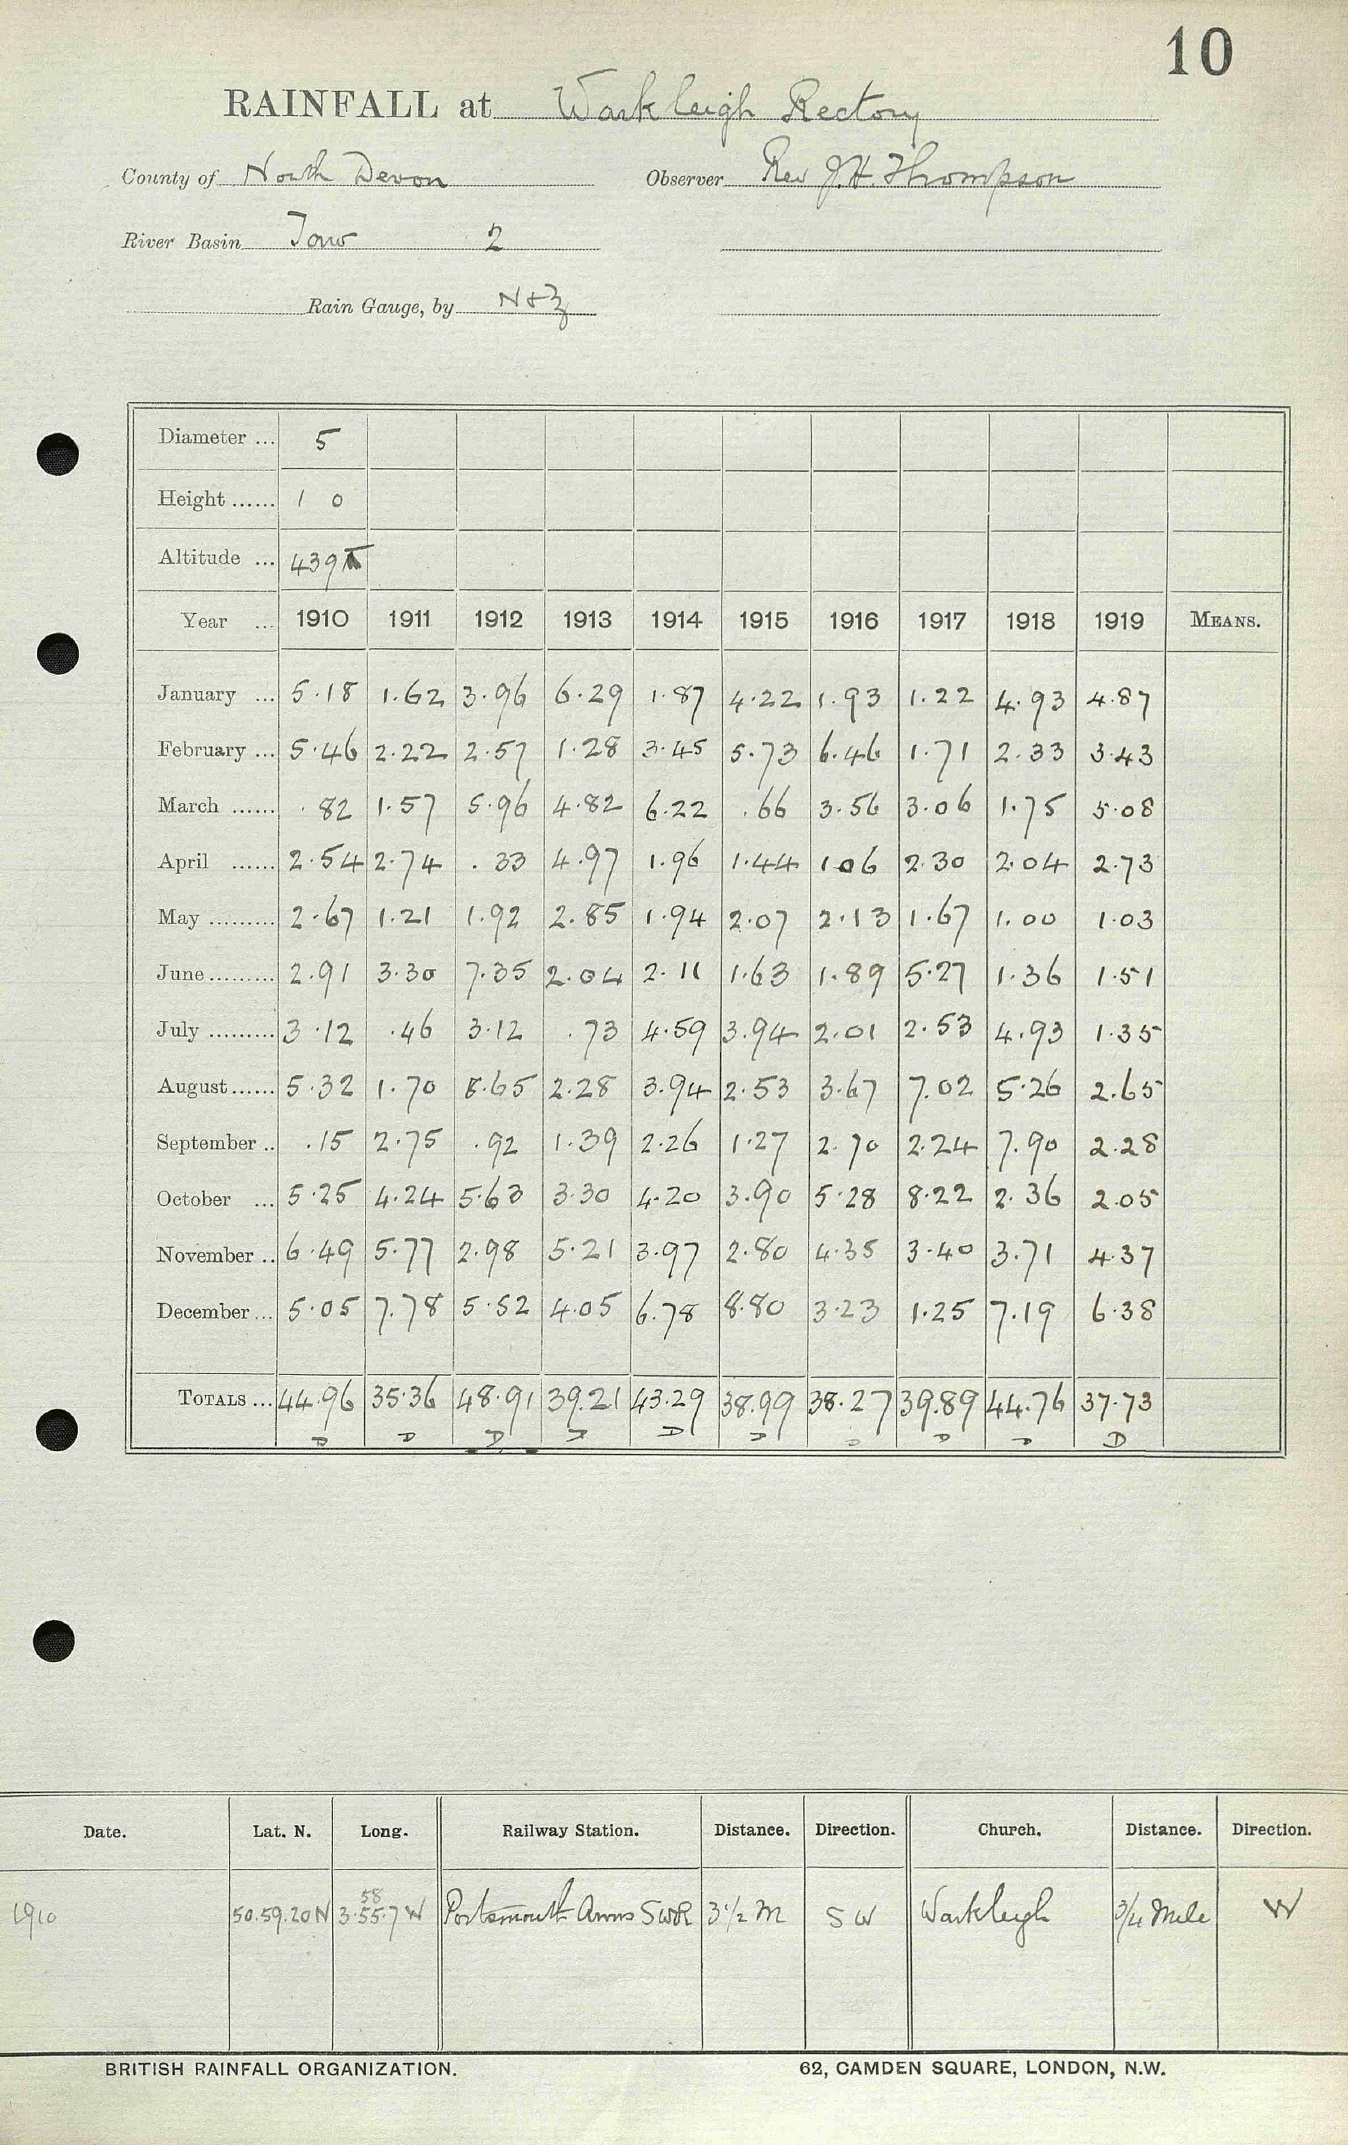 10
RAINFALL at Warkleigh Rectory
County of North Devon Observer Rev J. H. Thompson
River Basin Taw 2
Rain Gauge, by N & Z
Diameter ... 5
Height ...... 1 0
Altitude ... 439
Year ... 1910 1911 1912 1913 1914 1915 1916 1917 1918 1919 MEANS.
January ... 5.18 1.62 3.96 6.29 1.87 4.22 1.93 1.22 4.93 4.87
February ... 5.46 2.22 2.57 1.28 3.45 5.73 6.46 1.71 2.33 3.43
March ...... .82 1.57 5.96 4.82 6.22 .66 3.56 3.06 1.75 5.08
April ...... 2.54 2.74 .33 4.97 1.96 1.44 1 06 2.30 2.04 2.73
May ......... 2.67 1.21 1.92 2.85 1.94 2.07 2.13 1.67 1.00 1.03
June ......... 2.91 3.30 7.35 2.04 2.11 1.63 1.89 5.27 1.36 1.51
July ......... 3.12 .46 3.12 .73 4.59 3.94 2.01 2.53 4.93 1.35
August ...... 5.32 1.70 8.65 2.28 3.94 2.53 3.67 7.02 5.26 2.65
September .. .15 2.75 .92 1.39 2.26 1.27 2.70 2.24 7.90 2.28
October ... 5.25 4.24 5.63 3.30 4.20 3.90 5.28 8.22 2.36 2.05
November .. 6.49 5.77 2.98 5.21 3.97 2.80 4.35 3.40 3.71 4.37
December ... 5.05 7.78 5.52 4.05 6.78 8.80 3.23 1.25 7.19 6.38
TOTALS ... 44.96 35.36 48.91 39.21 43.29 38.99 38.27 39.89 44.76 37.73
D D D D D D D D D D
Date. Lat. N. Long. Railway Station. Distance. Direction. Church. Distance. Direction.
58
1910 50.59.20 N 3.55.7 W Portsmouth Arms SWR 3 1/2 M SW Warkleigh 3/4 Mile W
BRITISH RAINFALL ORGANIZATION. 62, CAMDEN SQUARE, LONDON, N.W.